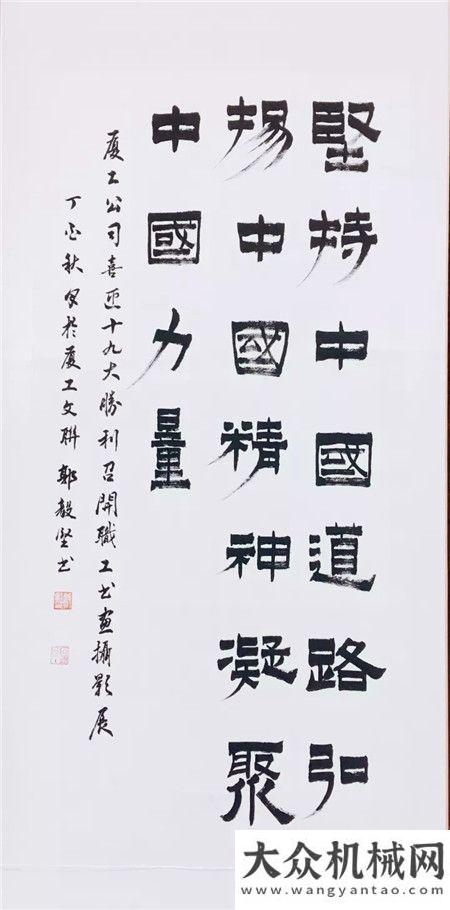 堅持中國道路弘
揚中國精神凝聚
中國力量
厦工公司喜迎十九大勝利召開職工书画攝影展
丁酉秋写於厦工文聯 郭毅堅书
大众机械网
www.wangyantao.com